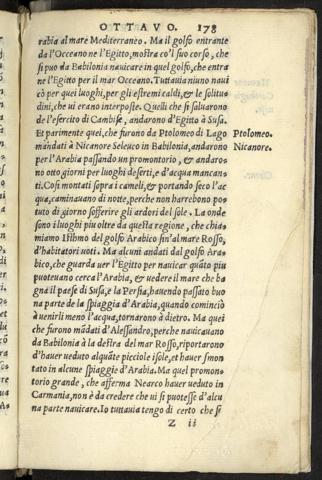 OTTAVO. 178
rabia al mare Mediterraneo. Ma il golfo entrante
da l'Oceano ne l'Egitto, mostra co'l suo corso, che
si puo da Babilonia nauicare in quel golfo, che entra
ne l'Egitto per il mar Oceano. Tuttauia niuno naui
cò per quei luoghi, per gli estremi caldi, & le solitu
dini, che ui erano interposte. Quelli che si saluarono
de l'esercito di Cambise, andarono d'Egitto à Susa.
Et parimente quei, che furono da Ptolomeo di Lago
mandati à Nicanore Seleuco in Babilonia, andarono
per l'Arabia passando un promontorio, & andaro-
no otto giorni per luoghi deserti, e d'acqua mancan-
ti. Cosi montati sopra i cameli, & portando seco l'ac
qua, caminauano di notte, perche non harrebono po-
tuto di giorno sofferire gli ardori del sole. La onde
sono i luoghi piu oltre da questa regione, che chia-
miamo Isthmo del golfo Arabico fin'al mare Rosso,
d'habitatori uoti. Ma alcuni andati dal golfo Ara-
bico, che guarda uer l'Egitto per nauicar quāto piu
pioteuano cerca l'Arabia, & uedere il mare che ba
gna il paese di Susa, e la Persia, hauendo passato buo
na parte de la spiaggia d'Arabia, quando cominciò
à uenirli meno l'acqua, tornarono à dietro. Ma quei
che furono mādati d'Alessandro, perche nauicauano
da Babilonia à la destra del mar Rosso, riportarono
d'hauer ueduto alquāte picciole isole, et hauer smon
tato in alcune spiaggie d'Arabia. Ma quel promon-
torio grande, che afferma Nearco hauer ueduto in
Carmania, non è da credere che ui si potesse d'alcu
na parte nauicare. Io tuttauia tengo di certo che si
Z ii
Ptolomeo.
Nicanore.